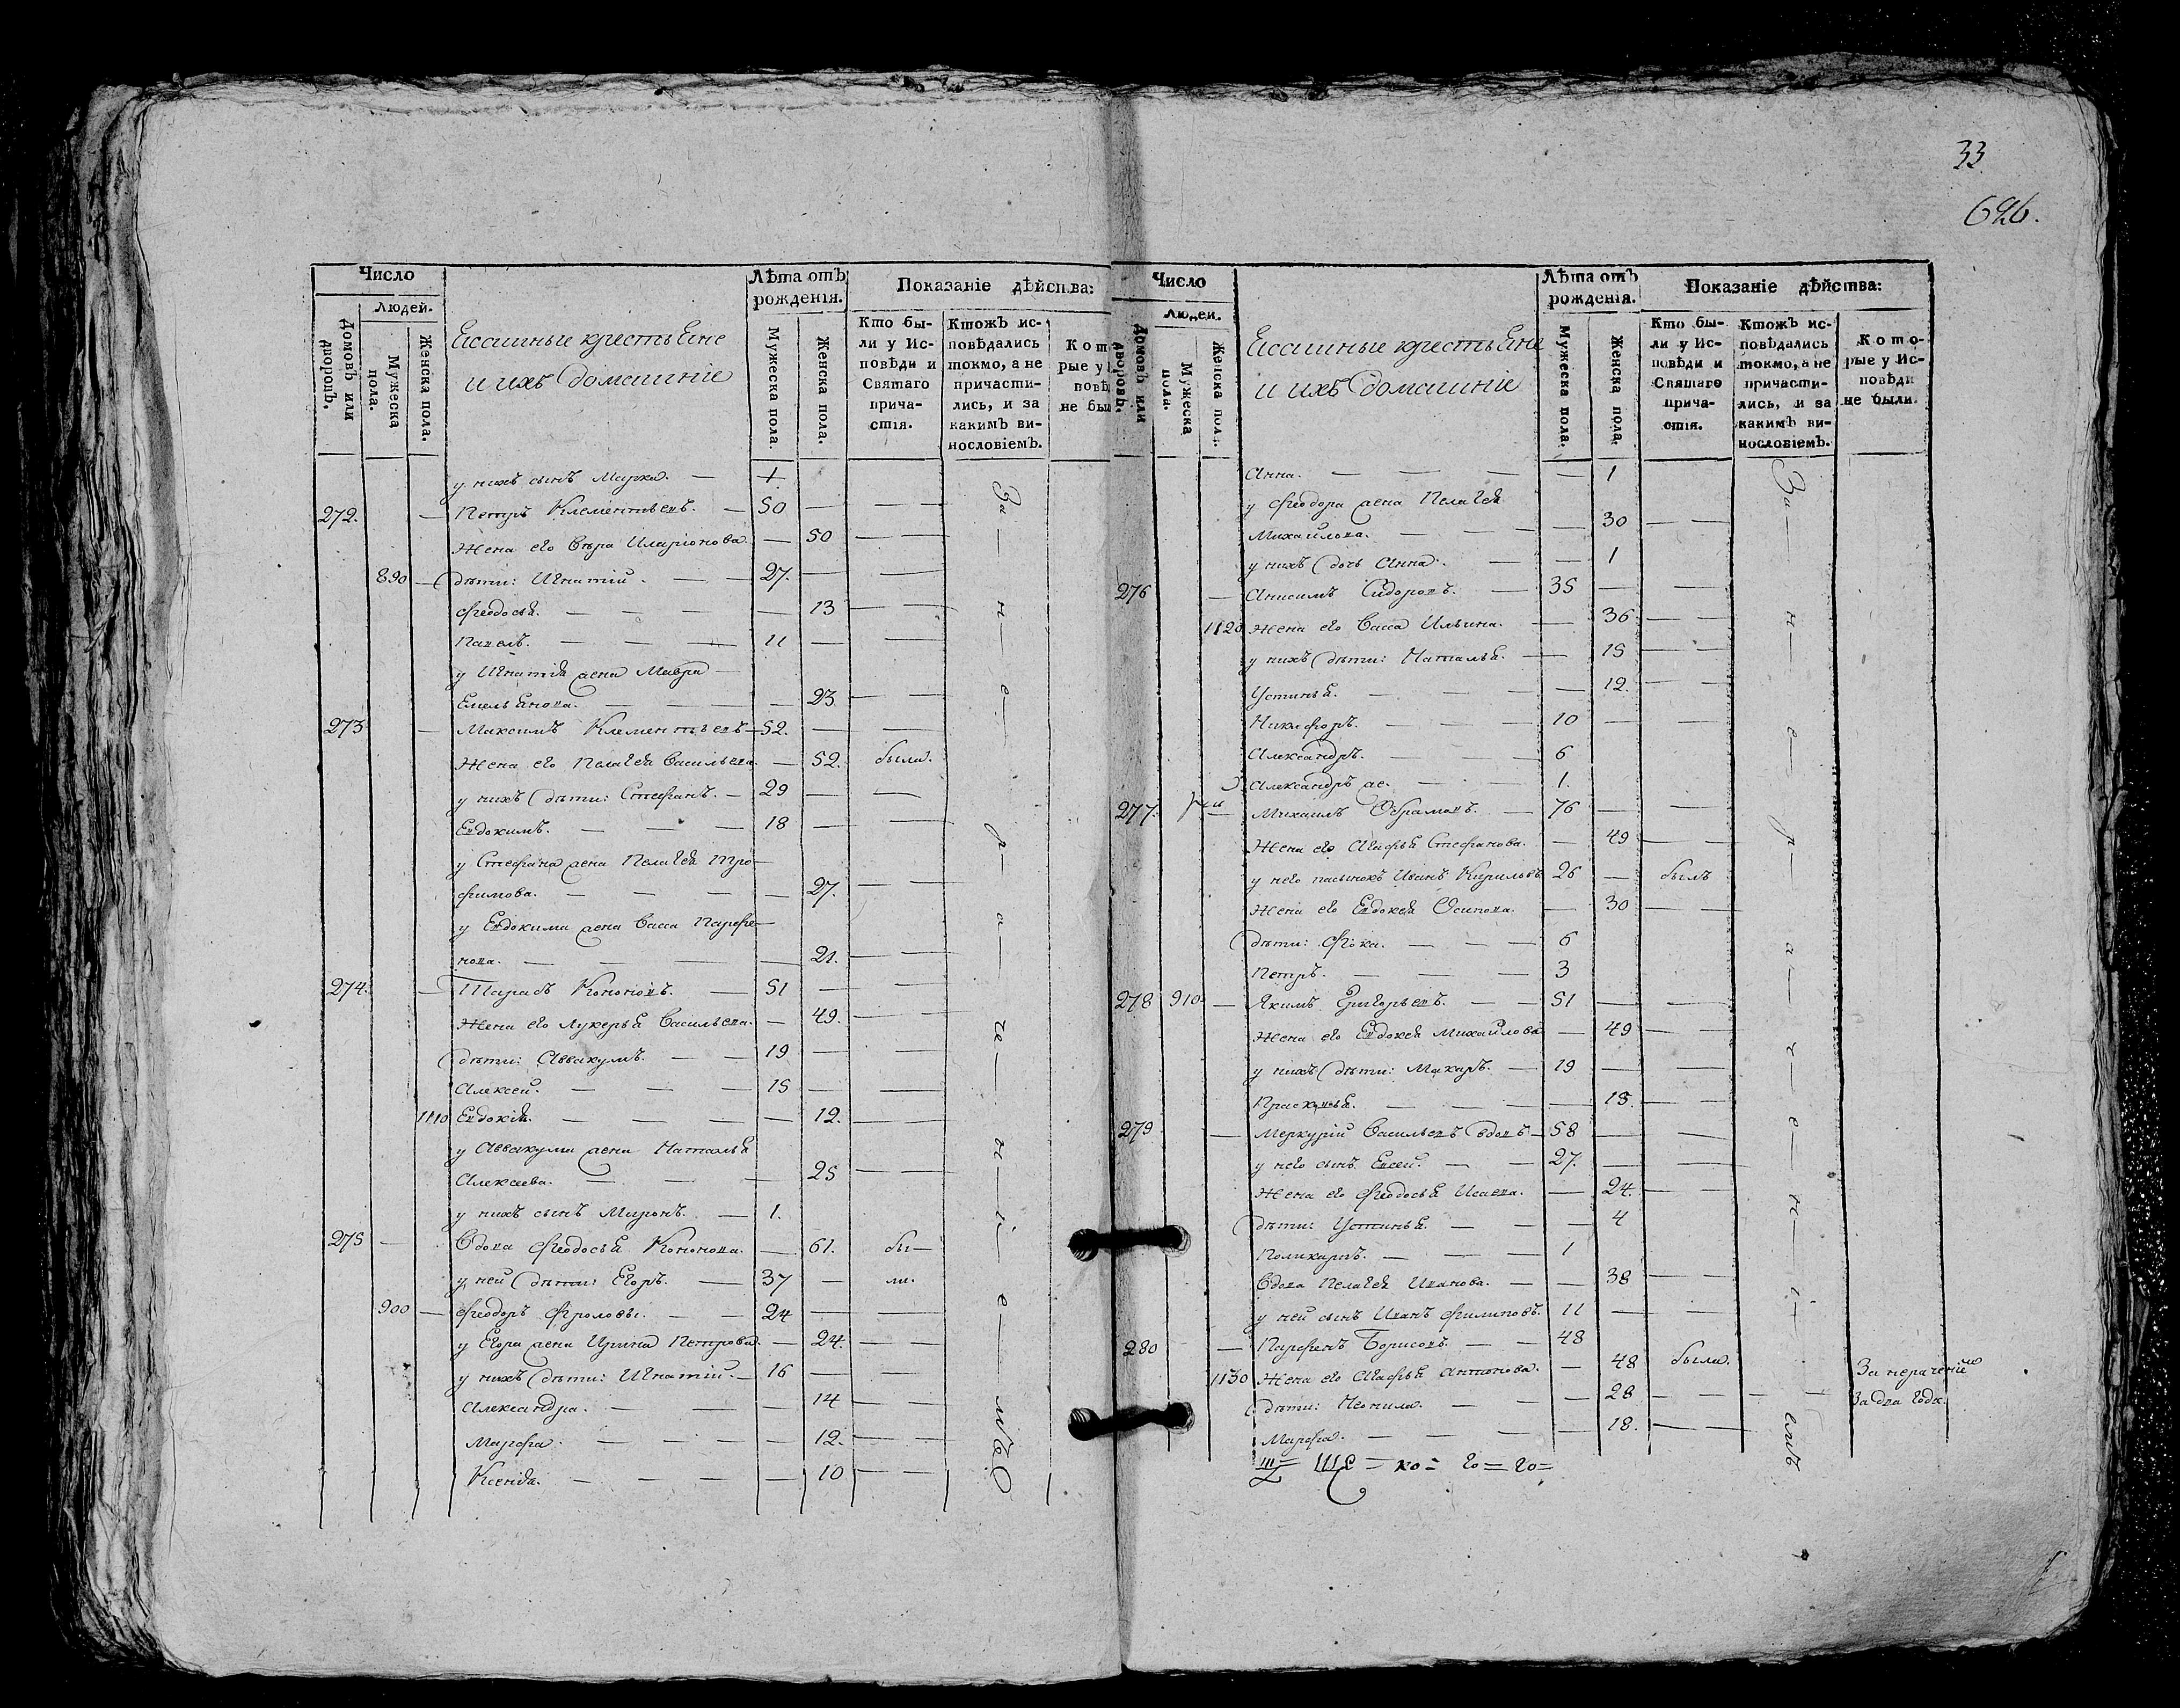 33.
696.
Число
Людей.
Домовъ или дворовъ.
Мужеска пола.
Женска пола.
крестьяне
и ихъ домашніе
Лѣта отъ рожденія.
Мужеска пола.
Женска пола.
Показаніе дѣйства:
Кто бы-
ли у Ис-
повѣди и
Святаго
прича-
стія.
Ктожъ ис-
повѣдались
токмо, а не
причасти-
лись, и за
какимъ ви-
нословіемъ.
Кот
рые у
повѣ
не бы
у нихъ сынъ Марко. —
272. — Петръ Клементьевъ. — 50 — —
Жена его Вѣра Иларіонова — 50 — —
890 — дѣти: Игнатій. — — 27. — —
Феодосья. — — — — 13 — —
Павелъ. — — — 11 — —
у Игнатія жена Мавра —
Емельянова. — — — 23 — —
273 — Максимъ Клементьевъ — 52. — —
Жена его Пелагея Васильева. — 52. были.
у нихъ дѣти: Стефанъ. — 29 — —
Евдокимъ. — — — 18 — —
у Стефана жена Пелагея Тро-
фимова. — — — — 27. — —
у Евдокима жена Васса Парфе-
нова. — — — — 21. — —
274. — Тарасъ Кононовъ. — 51 — —
Жена его Лукерья Васильева. — 49. — —
дѣти: Аввакумъ. — — 19 — —
Алексей. — — — 15 — —
1110 Евдокія. — — — — 12. — —
у Аввакума жена Наталья
Алексеева. — — — 25 — —
у нихъ сынъ Миронъ. — 1.
275 — Вдова Феодосья Кононова. — 61. бы—
у ней дѣти: Егоръ. — 37 — ли.
900 — Феодоръ Фроловы. — — 24 — —
у Егора жена Ирина Петрова. — 24. — —
у нихъ дѣти: Игнатій. — 16 — —
Александра. — — — — 14 — —
Марфа. — — — — 12. — —
Ксенія. — — — — 10 — —
За—
н—
е—
р—
а—
че—
н—
і—
е—
мъ
Число
Людей.
Домовъ или дворовъ.
Мужеска пола.
Женска пола.
крестьяне
и ихъ домашніе
Лѣта отъ рожденія.
Мужеска пола.
Женска пола.
Показаніе дѣйства:
Кто бы-
ли у Ис-
повѣди и
Святаго
прича-
стія.
Ктожъ ис-
повѣдались
токмо, а не
причасти-
лись, и за
какимъ ви-
нословіемъ.
Кото-
рые у Ис-
повѣди
не были.
Анна. — — — — 1
у Феодора жена Пелагея
Михайлова. — — — — 30 — —
у нихъ дочь Анна. — — 1
276 — Анисимъ Сидоровъ. — 35 — —
1120 Жена его Васса Ильина. — 36 — —
у нихъ дѣти: Наталья. — — 15 — —
Устинья. — — — — 12. — —
Никифоръ. — — — 10 — —
Александръ. — — — 6
Александръ же. — — 1.
277. — Михаилъ Обрамовъ. — 76 — —
Жена его Агафья Стефанова. — 49 — —
у него пасынокъ Иванъ Кирильевъ 26 — былъ
Жена его Евдокея Осипова. — 30 — —
дѣти: Фока. — — — 6
Петръ. — — — 3
278 910 — Якимъ Григорьевъ. — — 51 — —
Жена его Евдокея Михайлова — 49 — —
у нихъ дѣти: Макаръ. — 19 — —
Прасковья. — — — — 15. — —
279 — Меркурій Васильевъ вдовъ — 58 — —
у него сынъ Евсей. — — 27. — —
Жена его Феодосья Исаева. — 24. — —
дѣти: Устинья. — — — 4
Поликарпъ. — — — 1
Вдова Пелагея Иванова. — — 38 — —
у ней сынъ Иванъ Филиповъ. 11 — —
280 — Парфенъ Борисовъ. — — 48
1130 Жена его Агафья Антонова. — 48 были.
дѣти: Неонила. — — — 28 — — — За нераченіемъ
За два года.
Марфа. — — — — 18. — —
За—
н—
е—
р—
а—
ч—
е—
н—
і—
емъ